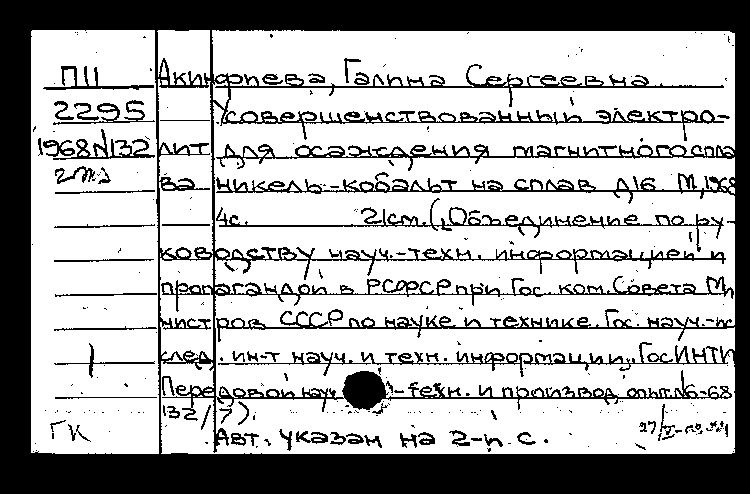 П11 Акинфиева, Галина Сергеевна.
2295 Усовершенствованный электро-
1968 №132 лит для осаждения магнитного спла
ва никель-кобальт на сплав Д16. М, 1968
4с. 21см. („Объединение по ру-
ководству науч.-техн. информацией и
пропагандой в РСФСР при Гос. ком. Совета Ми
нистров СССР по науке и технике. Гос. науч.-ис
след. ин-т науч. и техн. информации „ГосИНТИ
Передовой науч.-техн. и производ. опыт. №6-68-
132/7).
ГК Авт. указан на 2-й с.